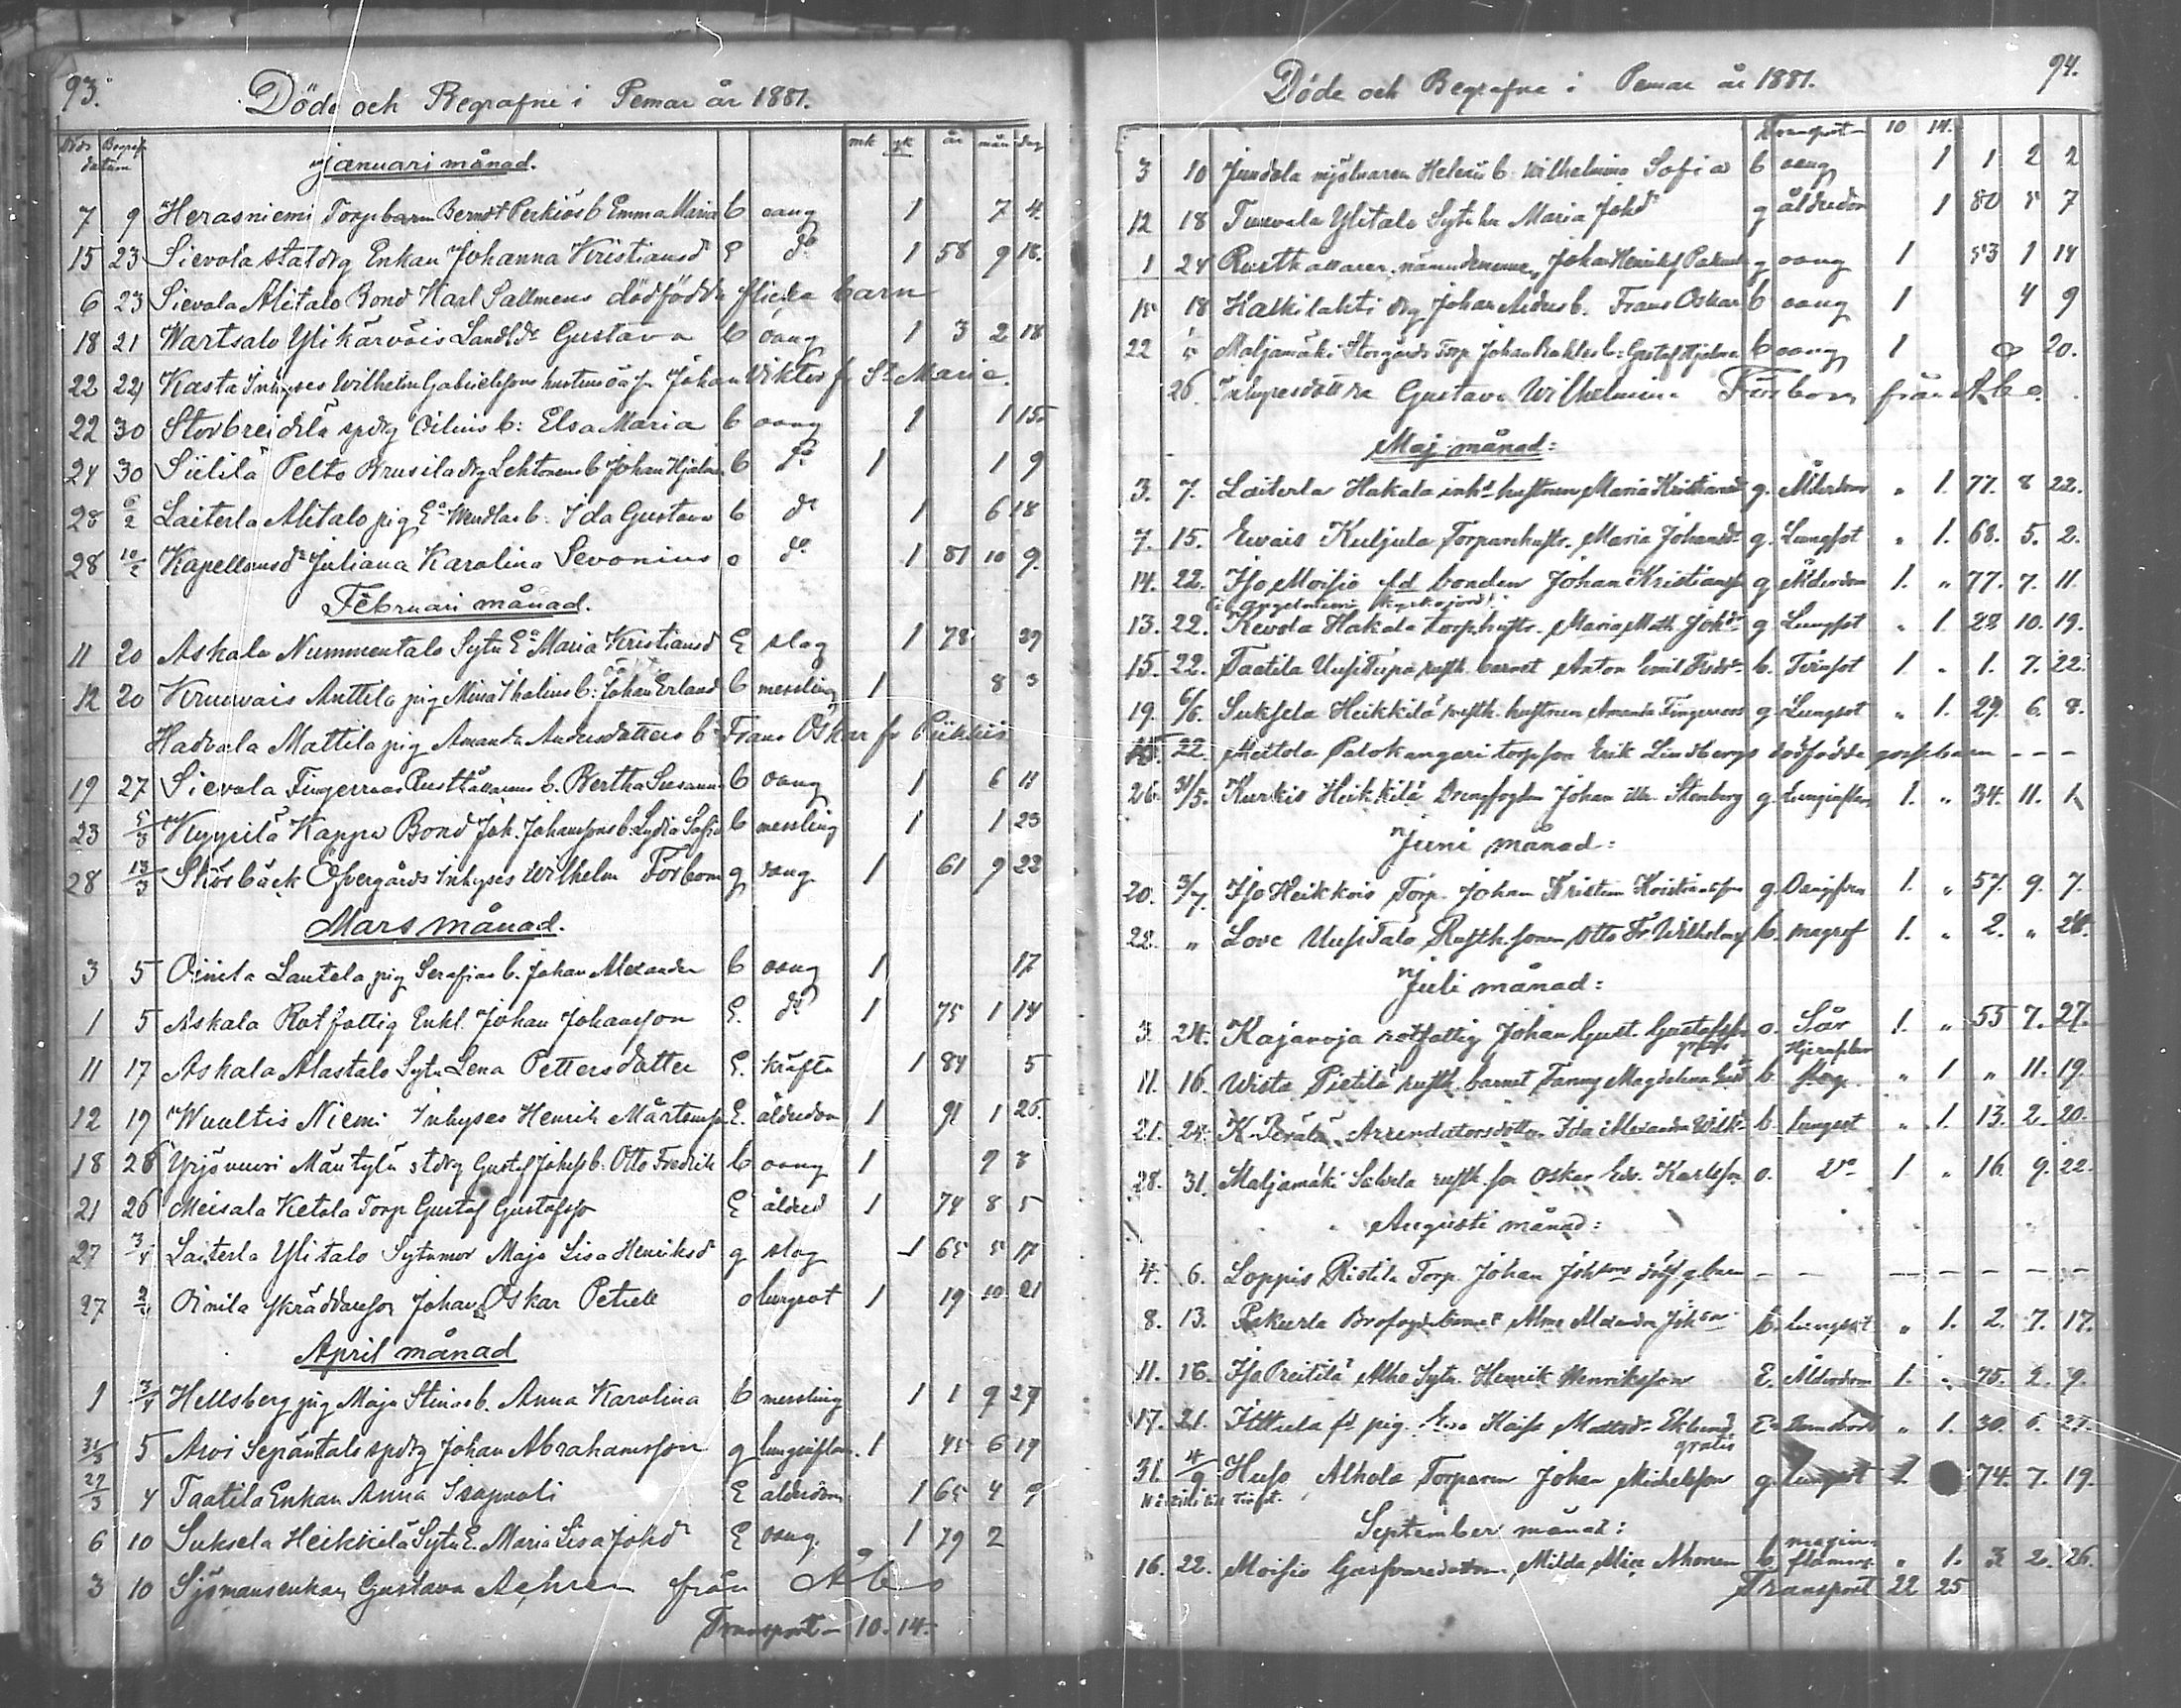 93.
Döde och Begrafne i Pemar år 1881.
Döds Begraf. mk qk år mån dag
datum
Januari månad.
7 9 Herasniemi Torpbarn Berndt Perkiös b Emma Maria b oang 1 7 4.
15 23 Sievola statdrg Enkan Johanna Kristiansd E do 1 58 9 18.
6 23 Sievala Alitalo Bond Karl Sallmens dödfödda flicka barn
18 21 Wartsalo Yli kärväis Landbds Gustava b oang 1 3 2 18
22 22 Kasta Inhyses Wilhelm Gabrielssons hustrus oä s. Johan Viktor fr St Marie.
22 30 Storbreidila spdrg Oilius b: Elsa Maria b oang 1 1 15
24 30 Siililä Pelto Brusila drg Lehtonens b Johan Hjalmar b do 1 1 9
28 6/2 Laiterla Alitalo pig Ea Wendlas b: Ida Gustava b do 1 6 18
28 10/2 Kapellansdr Juliana Karolina Sevonius o do 1 81 10 9.
Februari månad.
11 20 Askala Nummentalo Sytn Ea Maria Kristiansd E slag 1 78 29
12 20 Kruuvais Anttila pig Mina Thalins b: oä Johan Erland b messling 1 8 3
Hadvala Mattila pig Amanda Andersdotters b: Frans Oskar fr Pikkis
19 27 Sievola Fingerroos Rusthållarens b. Bertha Susanna b oang 1 6 11
23 5/3 Kyypilä Kappa Bond Joh. Johanssons b: Lydia Sofia b messling 1 1 23
28 13/3 Skörbäck Öfvergårds Inhyses Wilhelm Forbom g oang 1 61 9 22
Mars månad.
3 5 Oinila Lautela pig Serafias b. Johan Alexander b oang 1 17
1 5 Askala Rotfattig Enkl. Johan Johansson E. do 1 75 1 14
11 17 Askala Alastalo Sytn Lena Pettersdotter E. kräfta 1 84 5
12 19 Wuoltis Niemi Inhyses Henrik Mårtensson E. ålderdom 1 91 1 26.
18 26 Yrjövuori Mäntylä stdrg Gustaf Johss b: Otto Fredrik b oang 1 9 3
21 26 Meisala Ketola Torp Gustaf Gustafsso E ålderd 1 74 8 5
27 3/4 Laiterla Ylitalo Sytnmor Maja Lisa Henriksd g slag 1 65 5 17
27 2/4 Oinila skräddarson Johan Oskar Petrell o lungsot 1 19 10 21
April månad
1 3/4 Hellsberg pig Maja Stinas b. Anna Karolina b messling 1 1 9 29
31/3 5 Arvi Sepäntalo spdrg Johan Abrahamsson g lunginflam. 1 45 6 19
27/3 4 Taatila Enkan Anna Isapoali E ålderdom 1 65 4 9
6 10 Suksela Heikkilä Sytn E. Maria Lisa Johd E oang. 1 79 2
3 10 Sjömansenkan Gustava Aehren från Åbo
Transport 10. 14.
94.
Döde och Begrafne i Pemar år 1881.
Transport 10 14.
3 10 Jundola mjölnaren Helenius b. Wilhelmina Sofia b oang 1 1 2 2
12 18 Tuorvala Ylitalo Sytn hu Maria Johd g ålderdom 1 80 5 7
1 24 Rusthållaren, nämndeman, Johan Henrikss g oang 1 53 1 14
15 18 Halkilahti drg Johan Anders b. Frans Oskar b oang 1 4 9
22 1/5 Maljamäki Storgårds Torp Johan b: Gustaf Hjalmar b oang 1 20.
26. Inhyresdottern Gustava Wilhelmina Forbom från Åbo.
Maj månad:
3. 7. Laiterla Hakala inhs hustrun Maria Kristiansd g. Ålderdom " 1. 77. 8 22.
7. 15. Ewais Kuljula Torparehustr. Maria Johansdr g. Lungsot " 1. 68. 5. 2.
14. 22. Iso Moisio fd bonden Johan Kristiansson g Ålderdom 1. " 77. 7. 11.
13. 22. Kevola Hakala torphustr. Maria Math. Johdr g Lungsot " 1. 28 10. 19.
15. 22. Taatila Uusitupa rusth. barnet Anton Emil Fredr. b. Tvinsot 1 " 1. 7. 22.
19. 6/6. Suksela Heikkilä rusth. hustrun Amanda Fingerroos g Lungsot " 1. 29. 6. 8.
15. 22. Meltola Palokangari torpson Erik Lindbergs dödfödda gossebarn - - -
26. 31/5. Kurkis Heikkilä Drengfogden Johan Stenberg g. Lunginflam 1. " 34. 11. 1.
Juni månad:
20. 3/7. Iso Heikkois Torp. Johan Kristian Kristiansson g. 1. " 57. 9. 7.
22. " Love Uusitalo Rusth. sonen Otto Fr Wilhelmss b. magref 1. " 2. " 26.
Juli månad:
3. 24. Kajanoja rotfattig Johan Gust. Gustafsson o. Sår 1. " 55 7. 27.
gratis Hjerninflam
11. 16. Wista Pietilä rusth. barnet Fanny Magdalena b. " 1 " 11. 19.
21. 24. K-Perälä Arrendatorsdotter Ida Alexandra Wilh. b. lungsot " 1. 13. 2. 20.
28. 31. Maljamäki Salvela rusth. son Oskar Edv. Karlsson o. Do 1. " 16. 9. 22.
Augusti månad:
4. 6. Loppis Ristila Torp. Johan Johsons dödf g barn - - - - - - -
8. 13. Pakurla Alma Alexandra Johdr b. lungsot " 1. 2. 7. 17.
11. 16. Iso Preitilä Alho Sytn. Henrik Henriksson E. Ålderdom 1. " 75. 2. 9.
17. 21. fd pig. Kaisa Mattsdr Eklund E. " 1. 30. 6. 27.
gratis
31. 4/9 Huso Alhola Torparen Johan Michelsson g lungsot 1. 74. 7. 19.
September månad:
magin-
16. 22. Moisio Garfvaredottern, Milda Alice Ahonen b. flamm. " 1. 3. 2. 26.
Transport 22 25